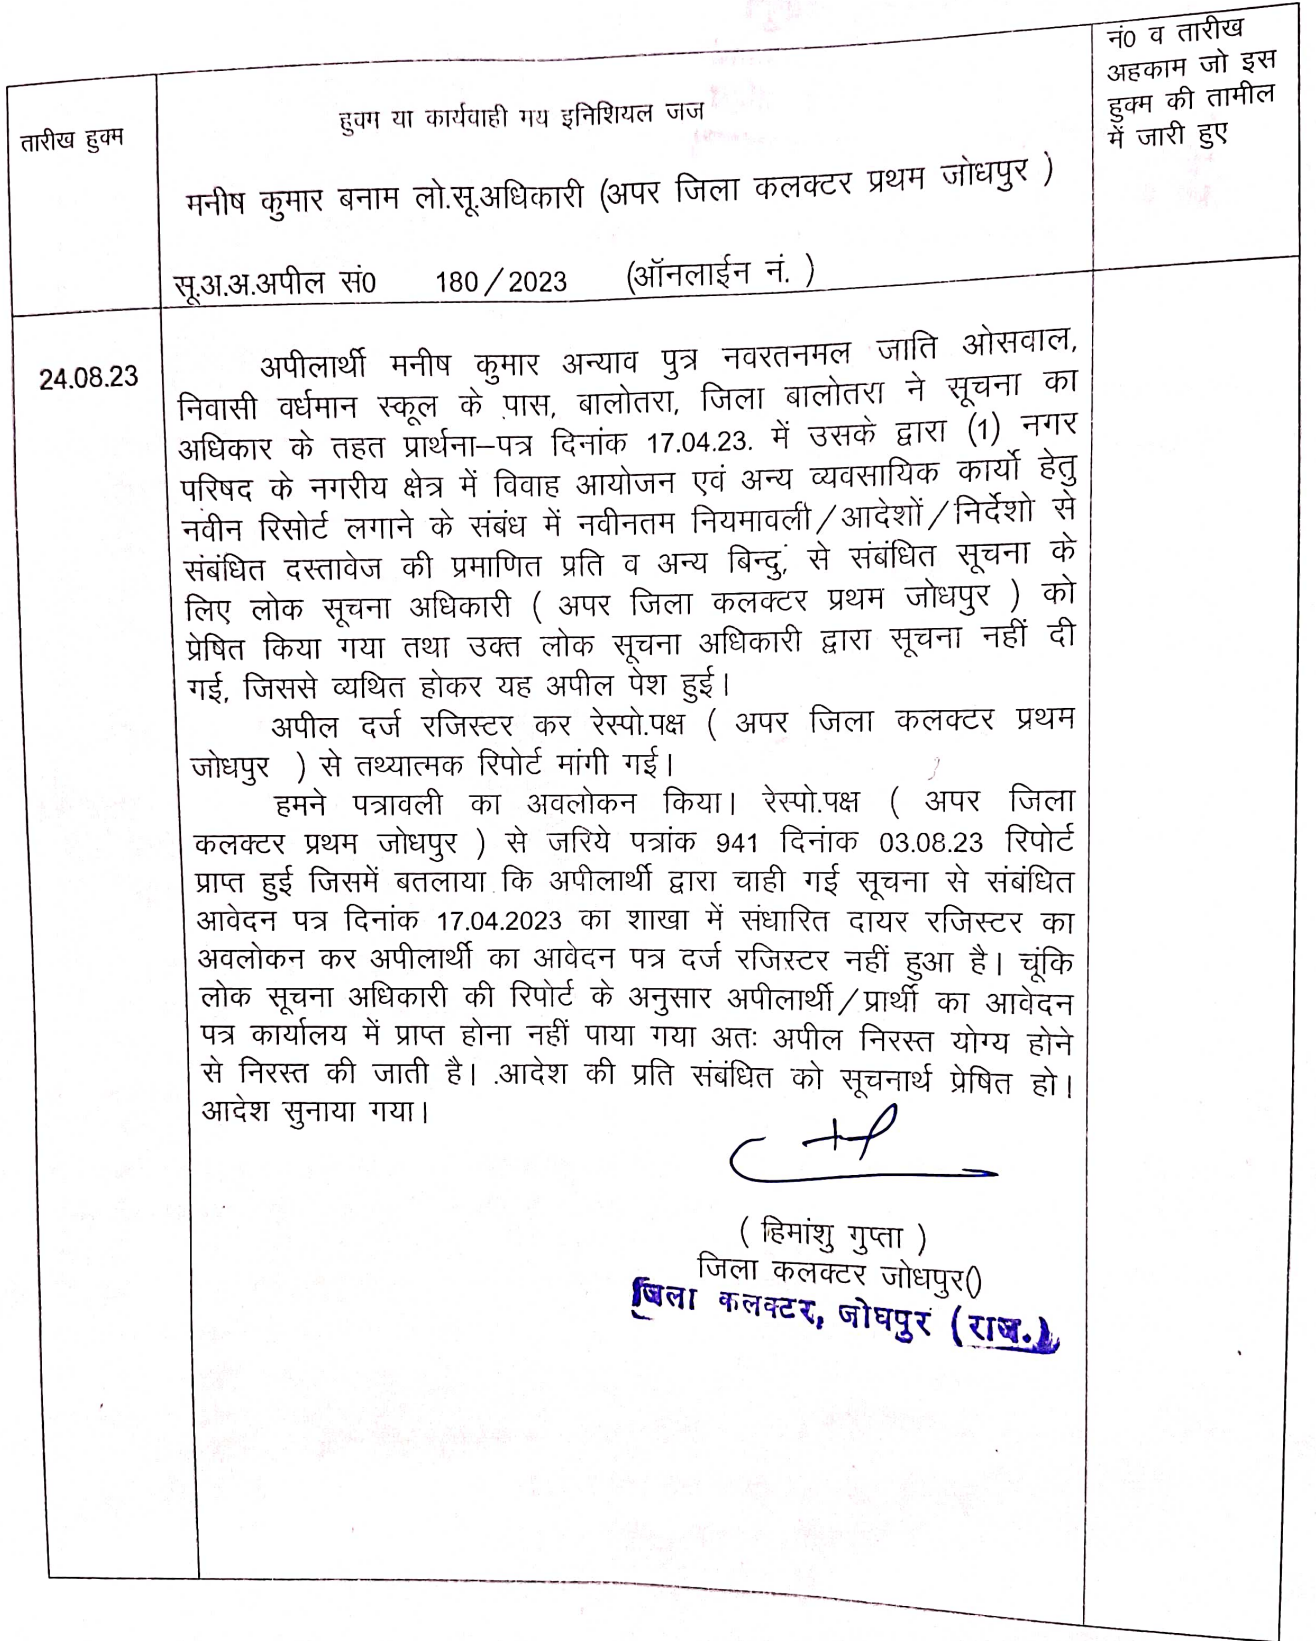 तारीख हुक्म
हुक्म या कार्यवाही मय इनिशियल जज
नं0 व तारीख
अहकाम जो इस
हुक्म की तामील
में जारी हुए
मनीष कुमार बनाम लो.सू.अधिकारी (अपर जिला कलक्टर प्रथम जोधपुर )
सू.अ.अ.अपील सं0 180/2023 (ऑनलाईन नं. )
24.08.23
अपीलार्थी मनीष कुमार अन्याव पुत्र नवरतनमल जाति ओसवाल,
निवासी वर्धमान स्कूल के पास, बालोतरा, जिला बालोतरा ने सूचना का
अधिकार के तहत प्रार्थना–पत्र दिनांक 17.04.23. में उसके द्वारा (1) नगर
परिषद के नगरीय क्षेत्र में विवाह आयोजन एवं अन्य व्यवसायिक कार्यो हेतु
नवीन रिसोर्ट लगाने के संबंध में नवीनतम नियमावली/आदेशों/निर्देशो से
संबंधित दस्तावेज की प्रमाणित प्रति व अन्य बिन्दु, से संबंधित सूचना के
लिए लोक सूचना अधिकारी ( अपर जिला कलक्टर प्रथम जोधपुर ) को
प्रेषित किया गया तथा उक्त लोक सूचना अधिकारी द्वारा सूचना नहीं दी
गई, जिससे व्यथित होकर यह अपील पेश हुई।
अपील दर्ज रजिस्टर कर रेस्पो.पक्ष ( अपर जिला कलक्टर प्रथम
जोधपुर ) से तथ्यात्मक रिपोर्ट मांगी गई।
हमने पत्रावली का अवलोकन किया। रेस्पो.पक्ष ( अपर जिला
कलक्टर प्रथम जोधपुर ) से जरिये पत्रांक 941 दिनांक 03.08.23 रिपोर्ट
प्राप्त हुई जिसमें बतलाया कि अपीलार्थी द्वारा चाही गई सूचना से संबंधित
आवेदन पत्र दिनांक 17.04.2023 का शाखा में संधारित दायर रजिस्टर का
अवलोकन कर अपीलार्थी का आवेदन पत्र दर्ज रजिस्टर नहीं हुआ है। चूंकि
लोक सूचना अधिकारी की रिपोर्ट के अनुसार अपीलार्थी/प्रार्थी का आवेदन
पत्र कार्यालय में प्राप्त होना नहीं पाया गया अतः अपील निरस्त योग्य होने
से निरस्त की जाती है। .आदेश की प्रति संबंधित को सूचनार्थ प्रेषित हो।
आदेश सुनाया गया।
( हिमांशु गुप्ता )
जिला कलक्टर जोधपुर()
जिला कलक्टर, जोधपुर (राज.)